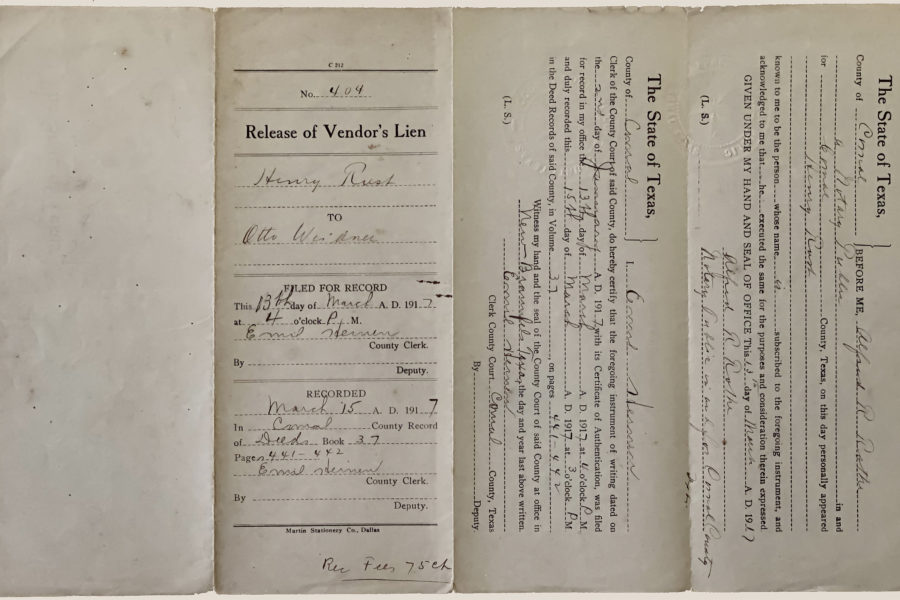 C 212
No. 404
Release of Vendor's Lien
Henry Rust
TO
Otto
FILED FOR RECORD
This 13th day of March A. D. 1917
at 4 o'clock P. M.
Emil Heinen
County Clerk.
By
Deputy.
RECORDED
March 15 A. D. 1917
In Comal County Record
of Deeds Book 37
Pages 441-442
Emil Heinen
County Clerk.
By
Deputy.
Martin Stationery Co., Dallas
Rec Fees 75 ct
The State of Texas,
County of Comal I, Emil Heinen
Clerk of the County Court of said County, do hereby certify that the foregoing instrument of writing dated on
the 2nd day of January A. D. 1917, with its Certificate of Authentication, was filed
for record in my office the 13th day of March A. D. 1917, at 4 o'clock P. M
and duly recorded this 15th day of March A. D. 1917, at 3 o'clock P M
in the Deed Records of said County, in Volume 37, on pages 441-442
Witness my hand and the seal of the County Court of said County at office in
New Braunfels Texas, the day and year last above written.
(L. S.)
Emil Heinen
Clerk County Court, Comal County, Texas
By Deputy.
The State of Texas,
County of Comal BEFORE ME, Alfred R. Rothe
a Notary Public in and
for Comal County, Texas, on this day personally appeared
Henry Rust
known to me to be the person whose name is subscribed to the foregoing instrument, and
acknowledged to me that he executed the same for the purposes and consideration therein expressed
GIVEN UNDER MY HAND AND SEAL OF OFFICE This day of March A. D. 1917
(L. S.)
Alfred R. Rothe
Notary Public in and for Comal County
Texas